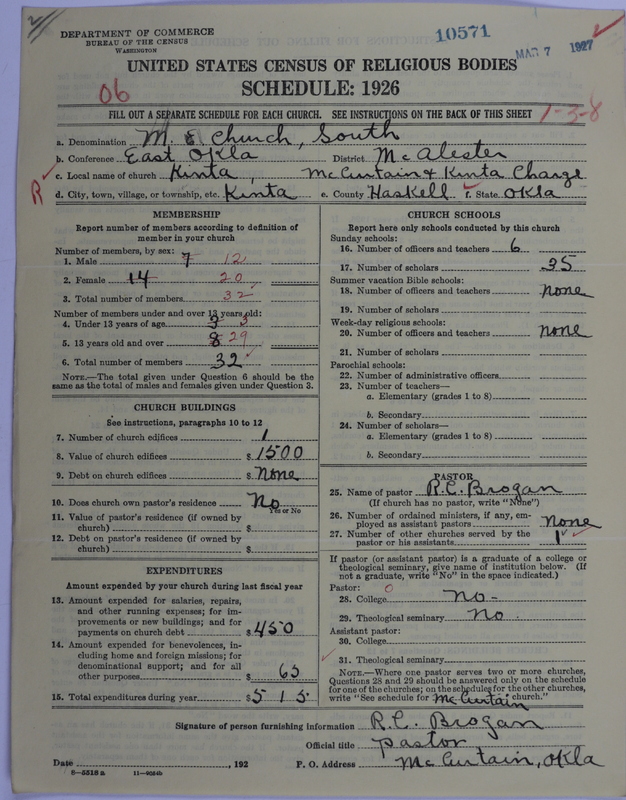 DEPARTMENT OF COMMERCE
BUREAU OF THE CENSUS
WASHINGTON
10571
MAR 7 1927
UNITED STATES CENSUS OF RELIGIOUS BODIES
SCHEDULE: 1926
06
FILL OUT A SEPARATE SCHEDULE FOR EACH CHURCH. SEE INSTRUCTIONS ON THE BACK OF THIS SHEET
1-3-8
a. Denomination M. E. Church, South
b. Conference East Okla District McAlester
c. Local name of church Kinta, McCurtain & Kinta Charge
R
d. City, town, village, or township, etc. Kinta e. County Haskell f. State Okla
MEMBERSHIP
Report number of members according to definition of member in your church
Number of members, by sex:
1. Male 7 12
2. Female 14 20
3. Total number of members 32
Number of members under and over 13 years old:
4. Under 13 years of age 3 3
5. 13 years old and over 8 29
6. Total number of members 32
NOTE.—The total given under Question 6 should be the
same as the total of males and females given under Question 3.
CHURCH BUILDINGS
See instructions, paragraphs 10 to 12
7. Number of church edifices 1
8. Value of church edifices $ 1500
9. Debt on church edifices $ None
10. Does church own pastor's residence No
Yes or No
11. Value of pastor's residence (if owned by
church) $
12. Debt on pastor's residence (if owned by
church) $
EXPENDITURES
Amount expended by your church during last fiscal year
13. Amount expended for salaries, repairs,
and other running expenses; for im-
provements or new buildings; and for
payments on church debt $ 450
14. Amount expended for benevolences, in-
cluding home and foreign missions; for
denominational support; and for all
other purposes $ 65
15. Total expenditures during year $ 515
CHURCH SCHOOLS
Report here only schools conducted by this church
Sunday schools:
16. Number of officers and teachers 6
17. Number of scholars 35
Summer vacation Bible schools:
18. Number of officers and teachers none
19. Number of scholars
Week-day religious schools:
20. Number of officers and teachers none
21. Number of scholars
Parochial schools:
22. Number of administrative officers
23. Number of teachers—
a. Elementary (grades 1 to 8)
b. Secondary
24. Number of scholars—
a. Elementary (grades 1 to 8)
b. Secondary
PASTOR
25. Name of pastor R.C. Brogan
(If church has no pastor, write "None")
26. Number of ordained ministers, if any, em-
ployed as assistant pastors none
27. Number of other churches served by the
pastor or his assistants 1
If pastor (or assistant pastor) is a graduate of a college or
theological seminary, give name of institution below. (If
not a graduate, write "No" in the space indicated.)
Pastor: 0
28. College no-
29. Theological seminary no
Assistant pastor:
30. College
31. Theological seminary
NOTE.—Where one pastor serves two or more churches,
Questions 28 and 29 should be answered only on the schedule
for one of the churches; on the schedules for the other churches,
write "See schedule for McCurtain church."
Signature of person furnishing information R.C. Brogan
Official title pastor
Date , 192 P. O. Address McCurtain, Okla
8-5518 a 11-9054b